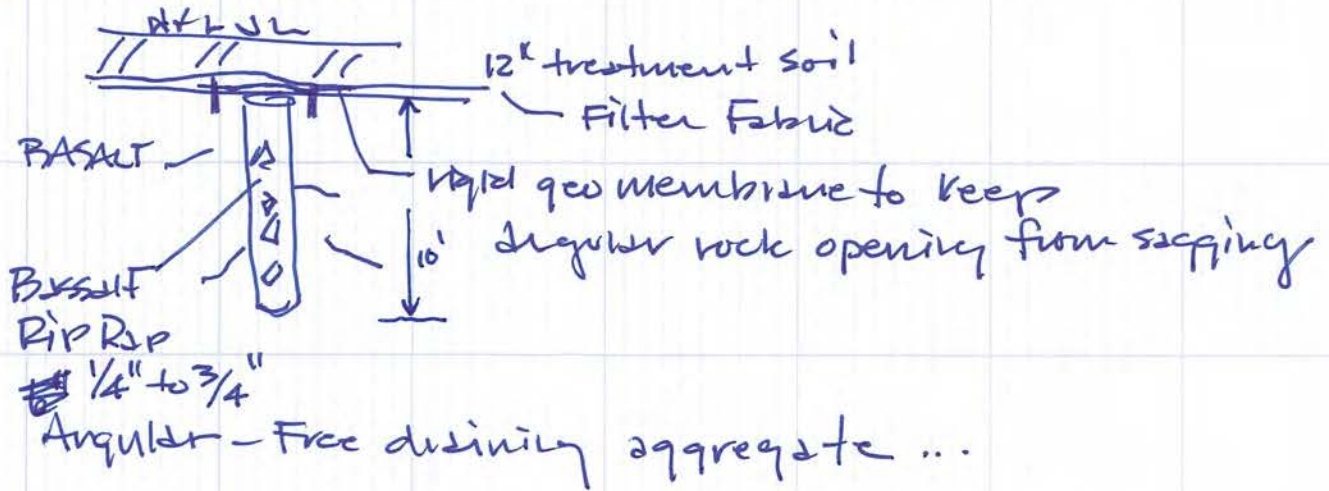 12" treatment soil
Filter Fabric
BASALT
rigid geo membrane to keep
angular rock opening from sagging
10'
Bassalt
Rip Rap
1/4" to 3/4"
Angular - Free draining aggregate ...